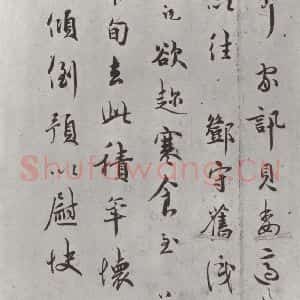 家訊見委
以往鄧守舊識
欲趂寒食至
旬去此積年懷
傾倒預以慰快
Shufawang.CN